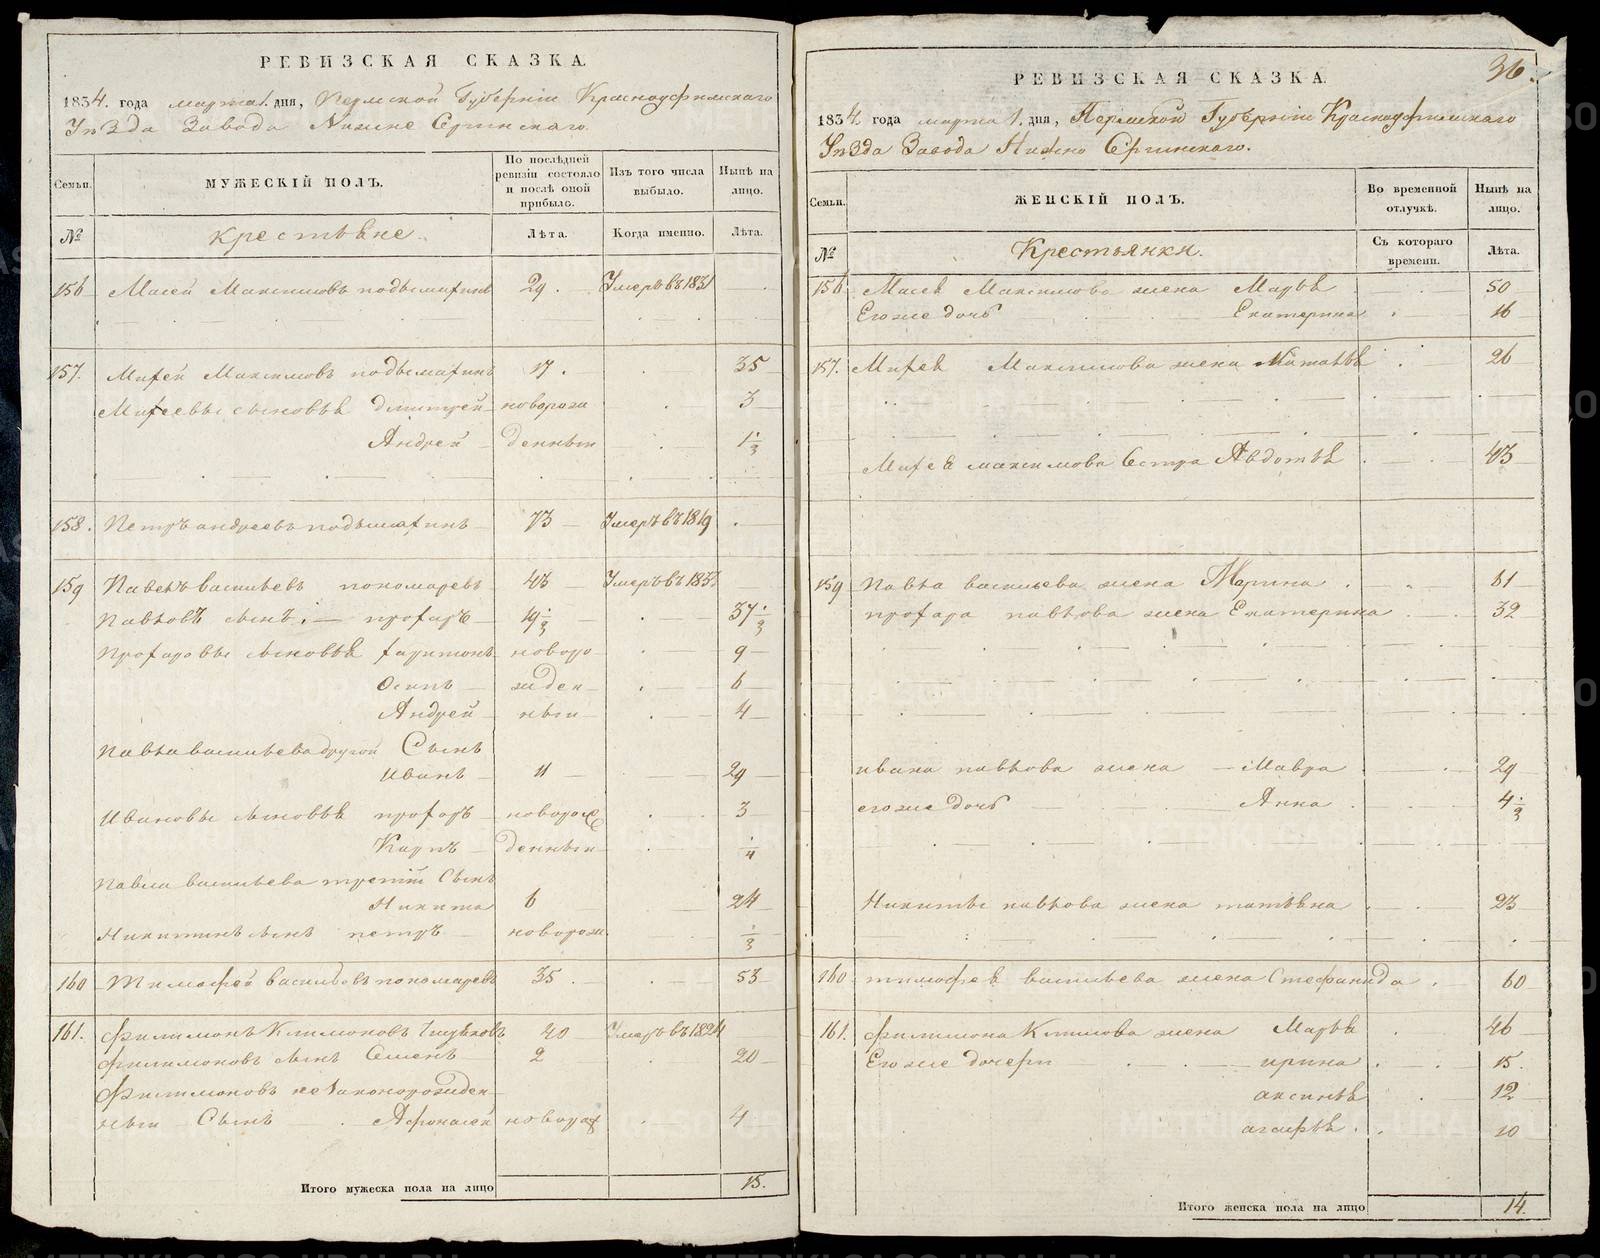 РЕВИЗСКАЯ СКАЗКА.
1834. года марта 1. дня, Пермской Губерніи Красноуфимскаго
Уѣзда Завода Нижне Сергинскаго.
Семьи.
МУЖЕСКІЙ ПОЛЪ.
По послѣдней ревизіи состояло и послѣ оной прибыло.
Изъ того числа выбыло.
Нынѣ на лицо.
№
крестьяне.
Лѣта.
Когда именно.
Лѣта.
156 Максимовъ 29. Умеръ въ 1831
157. Максимовъ 17. 35
сыновья Дмитрей новорож 3
Андрей денныи 1 1/3
158. Петръ андреевъ 73 Умеръ въ 1819
159 Павелъ васильевъ пономаревъ 43 Умеръ въ
Павловъ сынъ: профоръ 19 1/3 37 1/3
Профоровы сыновья харитонъ новоро 9
Осипъ жден 6
Андрей ныи 4
Павла васильева другой Сынъ
Иванъ 11 29
Ивановы сыновья профоръ новорож 3
Карпъ денныи 1/4
Павла васильева третій Сынъ
Никита 6 24
Никитинъ сынъ петръ новорож. 1/3
160 Тимофей васильевъ пономаревъ 35. 53
161. Филимонъ Климовъ 40 Умеръ въ 1824
Филимоновъ сынъ Семенъ 2 20
Филимоновъ незаконорожден
ныи Сынъ Афонасей новорож 4
Итого мужеска пола на лицо 15.
36.
РЕВИЗСКАЯ СКАЗКА.
1834. года марта 1. дня, Пермской Губерніи Красноуфимскаго
Уѣзда Завода Нижно Сергинскаго.
Семьи.
ЖЕНСКІЙ ПОЛЪ.
Во временной отлучкѣ.
Нынѣ на лицо.
№
Крестьянки.
Съ котораго времени.
Лѣта.
156 Максимова жена Марья 50
Егоже дочь Екатерина 16
157. Максимова жена Наталья 26
максимова Сестра Авдотья 43
159 Павла васильева жена Марина. 61
профора павлова жена Екатерина 32
ивана павлова жена Мавра 29
егоже дочь Анна 4 1/3
Никиты павлова жена татьяна 23
160 тимофея васильева жена Стефанида. 60
161. филимона Климова жена Марья 46
Егоже дочери ирина 15.
аксинья 12
агафья. 10
Итого женска пола на лицо 14.
METRIKI.GASO-URAL.RU